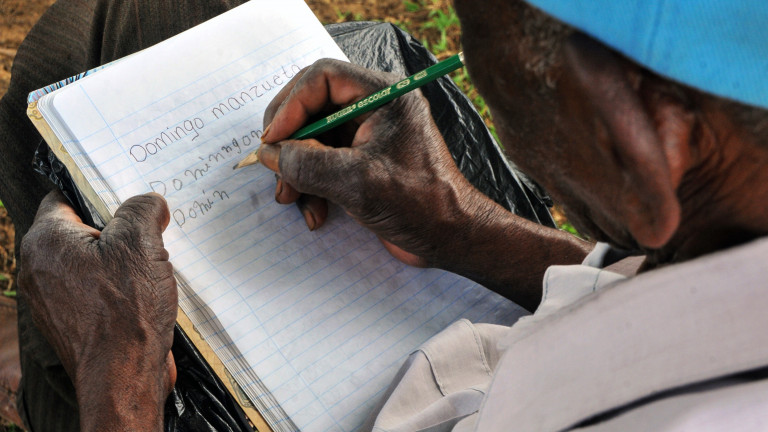 Domingo manzueta
Domingom
Domin
escolar